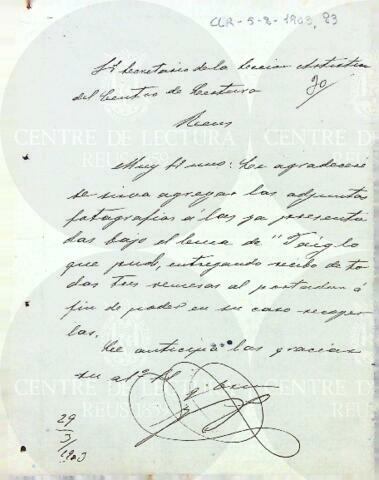 CLR-5-8-1903, 83
Sr Secretario de la Seccion Artistica
del Centro de Lectura
20/
Reus
CENTRE DE LECTURA
REUS 1859
Muy Sr mio: Le agradeceré
se sirva agregar las adjuntas
fotografias á las ya presenta
das bajo el lema de "Faig lo
que puch, entregando recibo de to
das tres remesas al portador á
fin de poder en su caso recoger
las.
Le anticipa las gracias
su
CENTRE DE LECTURA
REUS 1859
29
3/
1903